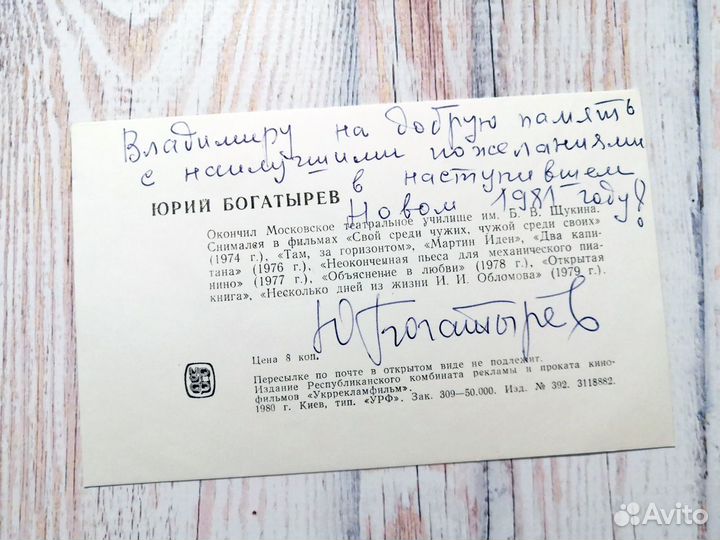 Владимиру на добрую память
с наилучшими пожеланиями
в наступившем
Новом 1981 году!
ЮРИЙ БОГАТЫРЕВ
Окончил Московское театральное училище им. Б. В. Щукина.
Снимался в фильмах «Свой среди чужих, чужой среди своих»
(1974 г.), «Там, за горизонтом», «Мартин Иден», «Два капи-
тана» (1976 г.), «Неоконченная пьеса для механического пиа-
нино» (1977 г.), «Объяснение в любви» (1978 г.), «Открытая
книга», «Несколько дней из жизни И. И. Обломова» (1979 г.).
Ю Богатырев
Цена 8 коп.
Пересылке по почте в открытом виде не подлежит.
Издание Республиканского комбината рекламы и проката кино-
фильмов «Укррекламфильм».
1980 г. Киев, тип. «УРФ». Зак. 309—50.000. Изд. № 392. 3118882.
Avito